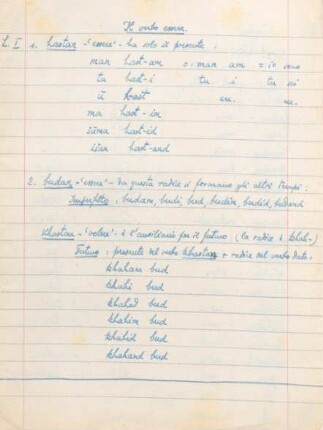 Il verbo essere.
L. I 1. hastan - "essere" - ha solo il presente:
man hast-am o: man am = io sono
tu hast-i tu i tu sei
ū hast
ma hast-im
šāma hast-id
išan hast-and
2. budan - "essere" - da questa radice si formano gli altri tempi:
Imperfetto: budam, budi, bud, budim, budid, budand
Khastan - "volere" - è l'ausiliario per il futuro (la radice è khah-)
Futuro: presente del verbo khastan + radice del verbo dato.
khaham bud
khahi bud
khahad bud
khahim bud
khahid bud
khahand bud